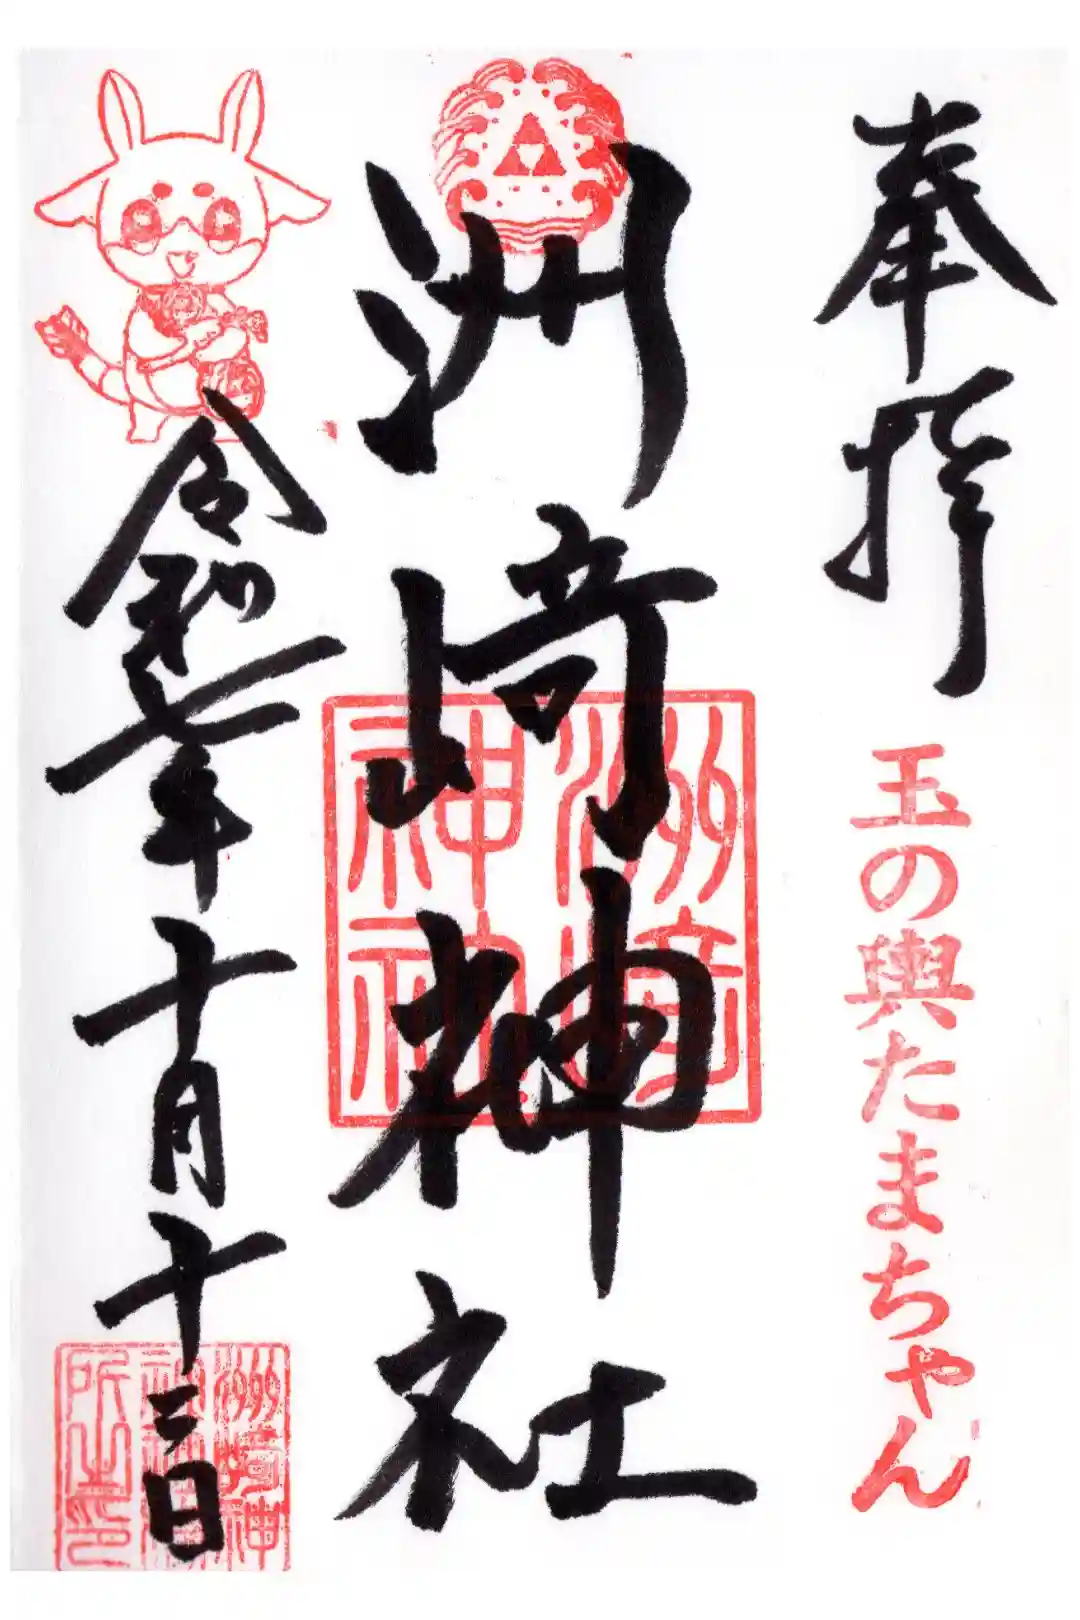 奉拝
玉の輿たまちゃん
洲崎神社
洲崎
神社
令和七年十月十三日
洲崎神
所之印